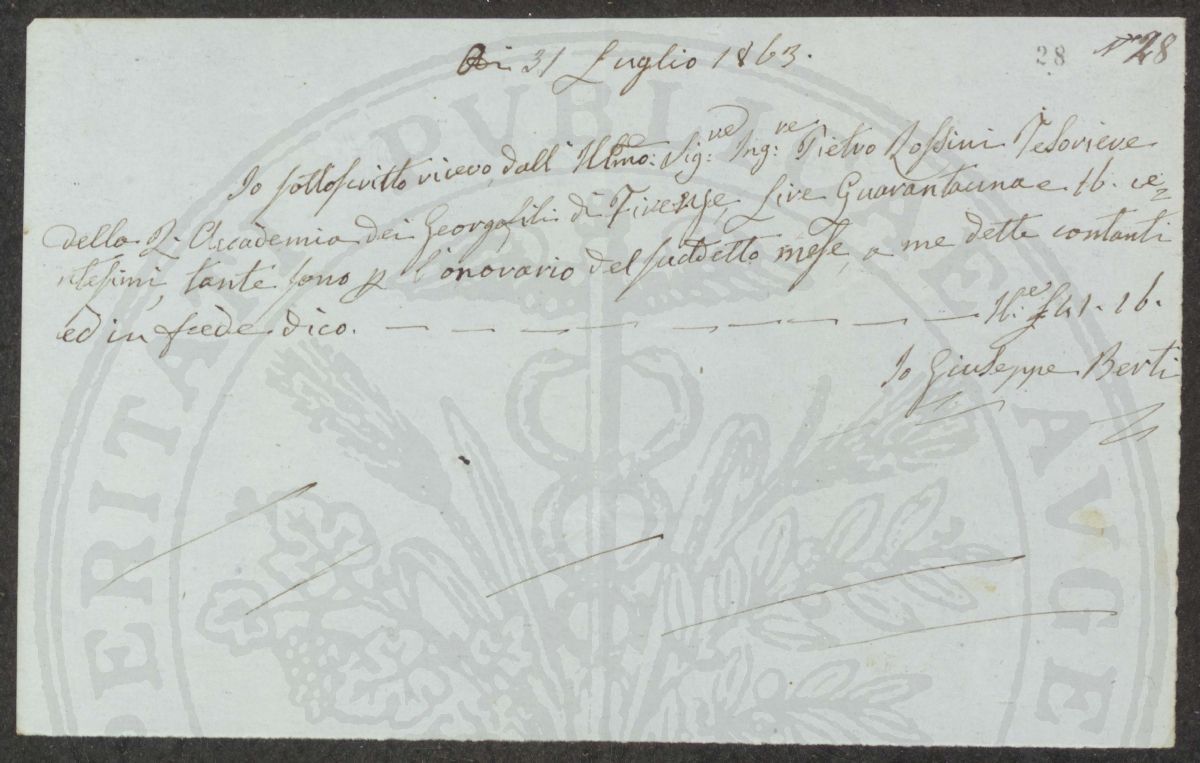 Di 31 Luglio 1863.
28 N° 28
Io sottoscritto ricevo, dall' Illmo: Sig:re Ing:re Pietro Rossini Tesoriere
della R. Accademia dei Georgofili di Firenze, Lire Quarantauna e 16. ce=
ntesimi, tante sono p l'onorario del suddetto mese, a me dette contanti
ed in fede dico. — — — — — — — — — — £41. 16.
Io Giuseppe Berti
PERITATI PVBLICAE AVGE